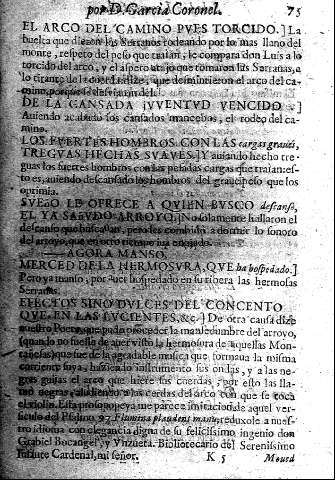 por D. Garcia Coronel. 75
EL ARCO DEL CAMINO PVES TORCIDO.] La
buelta que dieron las Serranas rodeando por lo mas llano del
monte, respeto del peso que traian, le compara don Luis a lo
torcido del arco, y el aspero atajo que tomaron las Serranas, a
lo tirante de la cuerda; dize, que desmintieron el arco del ca-
mino, porque le
DE LA CANSADA IVVENTVD VENCIDO.]
Auiendo acabado los cansados mancebos, el rodeo del ca-
mino.
LOS FVERTES HOMBROS CON LAS cargas graues,
TREGVAS HECHAS SVAVES.] Y auiendo hecho tre-
guas los fuertes hombros con las pesadas cargas que traian: es-
to es, auiendo descansado los hombros del graue peso que los
oprimia.
SVEÑO LE OFRECE A QVIEN BVSCO descanso,
EL YA SAÑVDO ARROYO,] No solamente hallaron el
descanso que buscauan, pero les combidò a dormir lo sonoro
del arroyo, que en otro tiempo iua enojado.
AGORA MANSO.
MERCED DE LA HERMOSVRA, QVE ha hospedado.]
Pero ya manso, por auer hospedado en su ribera las hermosas
Serranas.
EFECTOS SINO DVLCES DEL CONCENTO
QVE EN LAS LVCIENTES, &c.] De otra causa dize
nuestro Poeta, que pudo proceder la mansedumbre del arroyo,
(quando no fuesse de auer visto la hermosura de aquellas Mon-
tañesas) que fue de la agradable musica que formaua la misma
corriente suya, haziendo instrumento sus ondas, y a las ne-
gras guijas el arco que hiere sus cuerdas, por esto las lla-
mò negras, aludiendo a las cerdas del arco con que se toca
el violin. Esta prosopopeya me parece imitacion de aquel ver-
siculo del Psalmo 97. Flumina plaudent manu, reduxole a nues-
tro idioma con elegancia digna de su felicissimo ingenio don
Gabriel Bocangel, y Vnzueta. Bibliotecario del Serenissimo
Infante Cardenal, mi señor. K 5 Moued